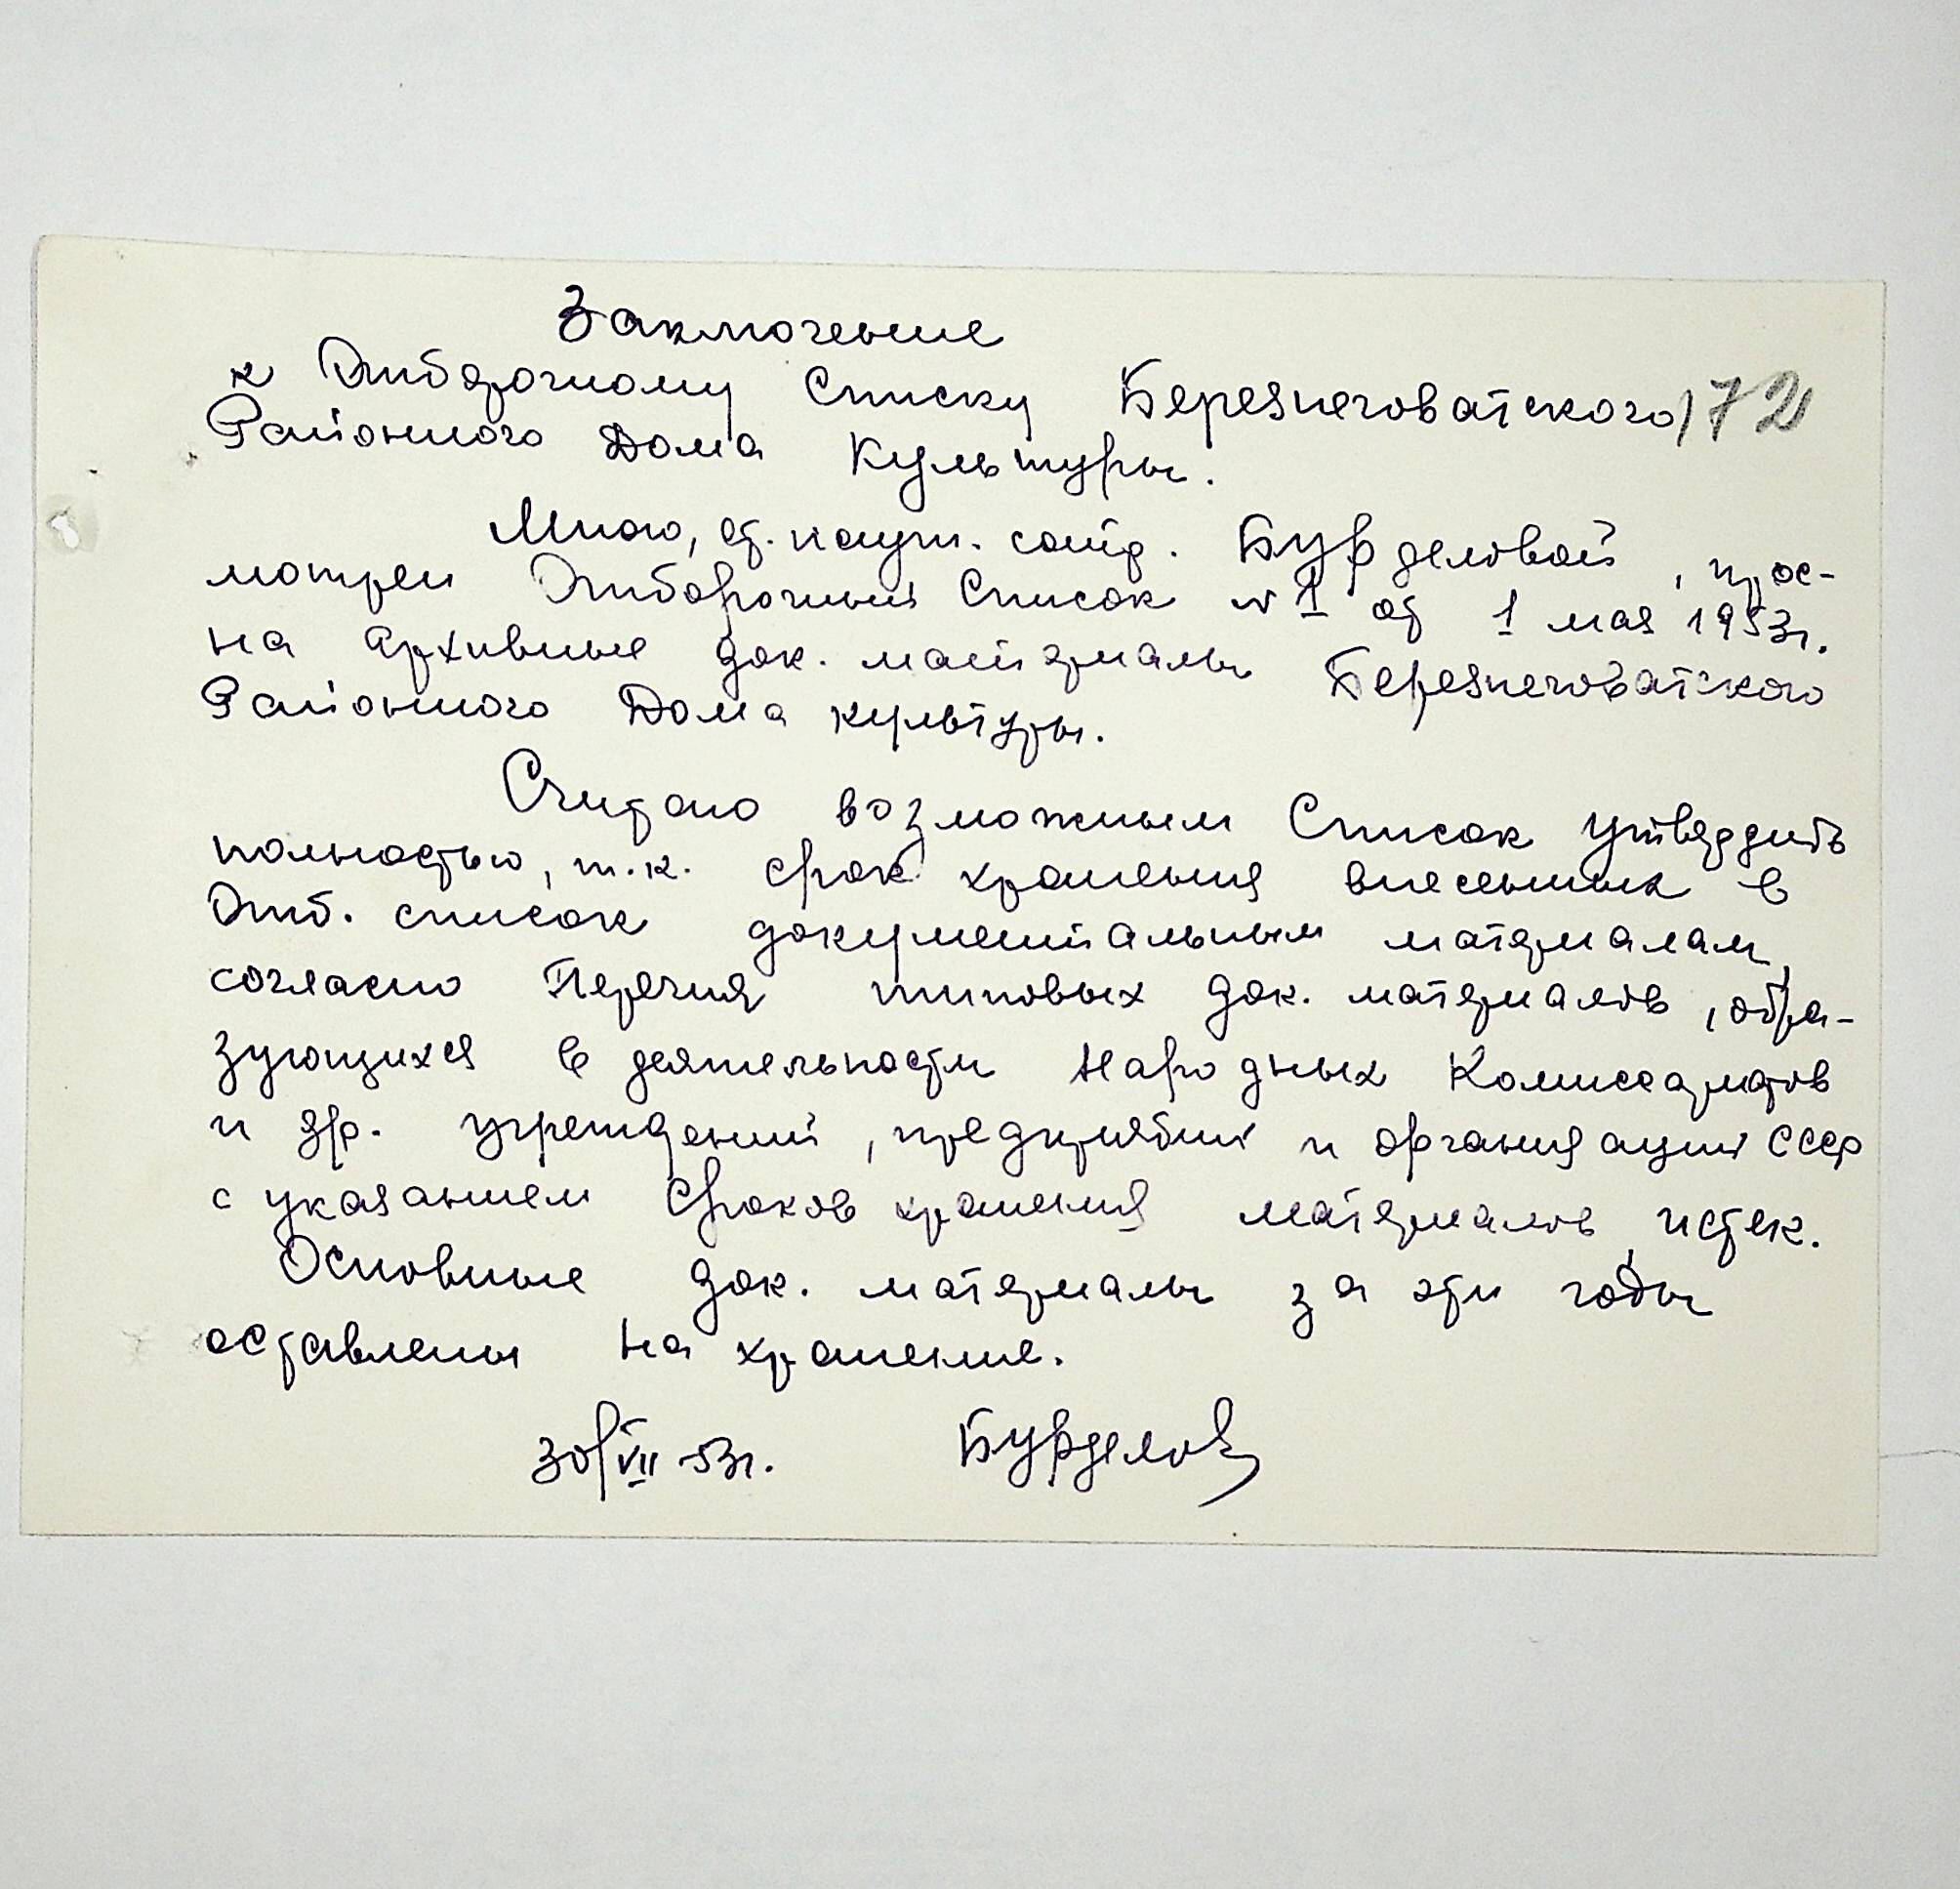 Заключение
к Отборочному Списку Березнеговатского 172
Районного Дома Культуры.
Мною, ст. научн. сотр. Бурделовой, прос-
мотрен Отборочный Список № 1 от 1 мая 1953 г.
на архивные док. материалы Березнеговатского
Районного Дома культуры.
Считаю возможным Список утвердить
полностью, т.к. срок хранения внесенных в
Отб. список документальным материалам,
согласно Перечня типовых док. материалов, обра-
зующихся в деятельности Народных Комиссариатов
и др. учреждений, предприятий и организаций СССР
с указанием сроков хранения материалов, истек.
Основные док. материалы за эти годы
оставлены на хранение.
30/VII-53г. Бурделов